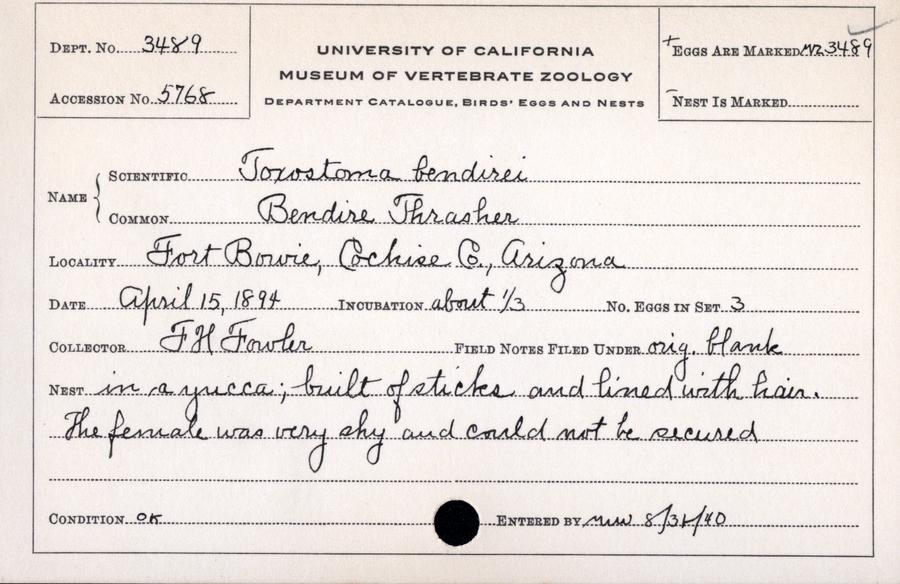 DEPT. NO. 3489
ACCESSION NO. 5768
UNIVERSITY OF CALIFORNIA
MUSEUM OF VERTEBRATE ZOOLOGY
DEPARTMENT CATALOGUE, BIRDS' EGGS AND NESTS
+EGGS ARE MARKED MVZ 3489
-NEST IS MARKED
NAME
SCIENTIFIC Toxostoma bendirei
COMMON Bendire Thrasher
LOCALITY Fort Bowie, Cochise Co., Arizona
DATE April 15, 1894 INCUBATION about 1/3 NO. EGGS IN SET 3
COLLECTOR F H Fowler FIELD NOTES FILED UNDER orig. blank
NEST in a yucca; built of sticks and lined with hair.
The female was very shy and could not be secured
CONDITION OK ENTERED BY 8/31/40